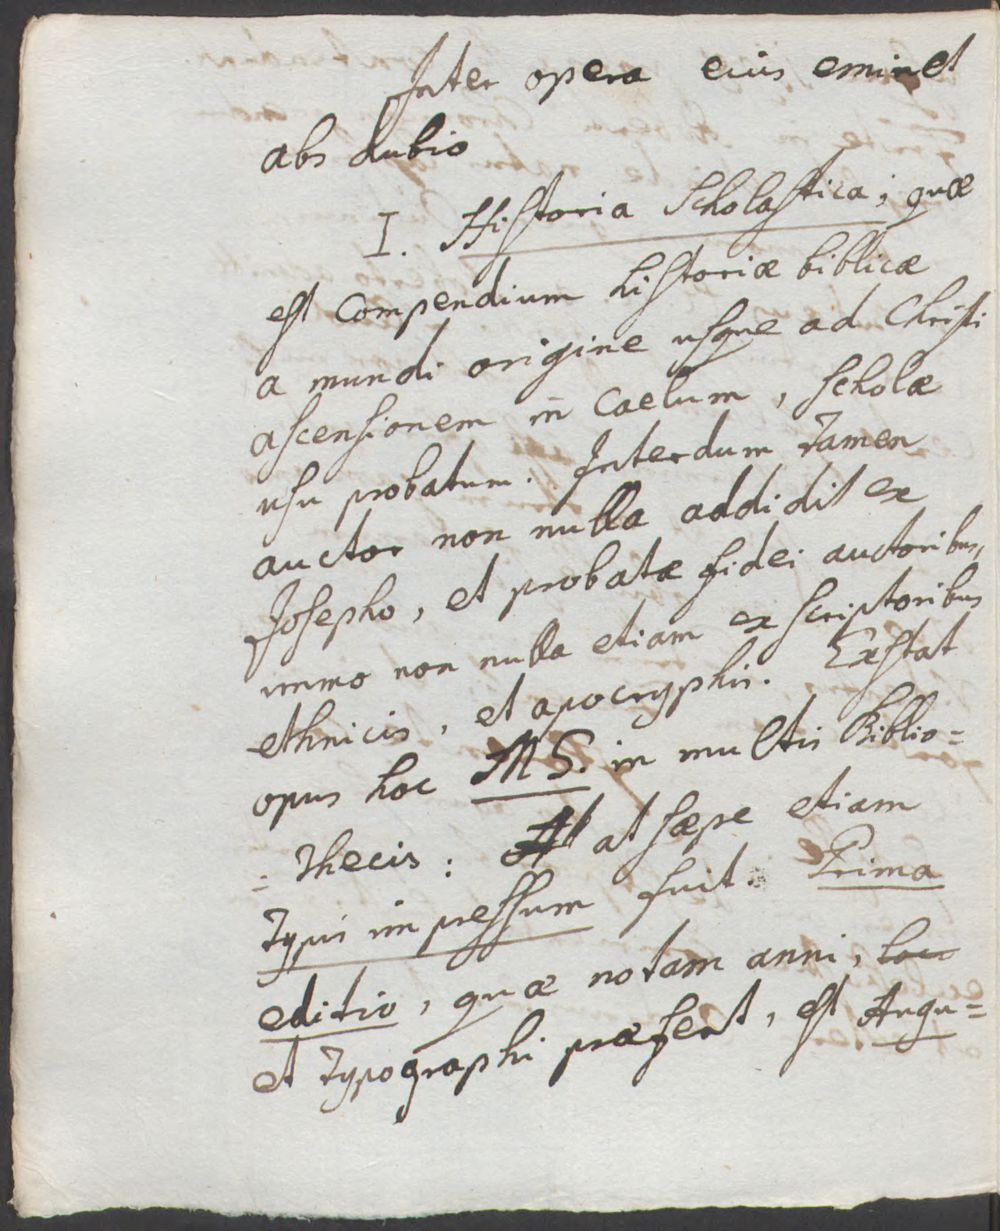 Inter opera eius eminet
abs dubio
I. Historia Scholastica; quæ
est compendium historiæ biblicæ
a mundi origine usque ad Christi
ascensionem in caelum, scholæ
usu probatum. Interdum tamen
auctor non nulla addidit ex
Josepho, et probatæ fidei auctoribus,
immo non nulla etiam ex scriptoribus
ethnicis, et apocryphis. Exstat
opus hoc MS. in multis Biblio=
=thecis: at sæpe etiam
typis impressum fuit. Prima
editio, quæ notam anni, loci
et typographi præfert, est Augu=